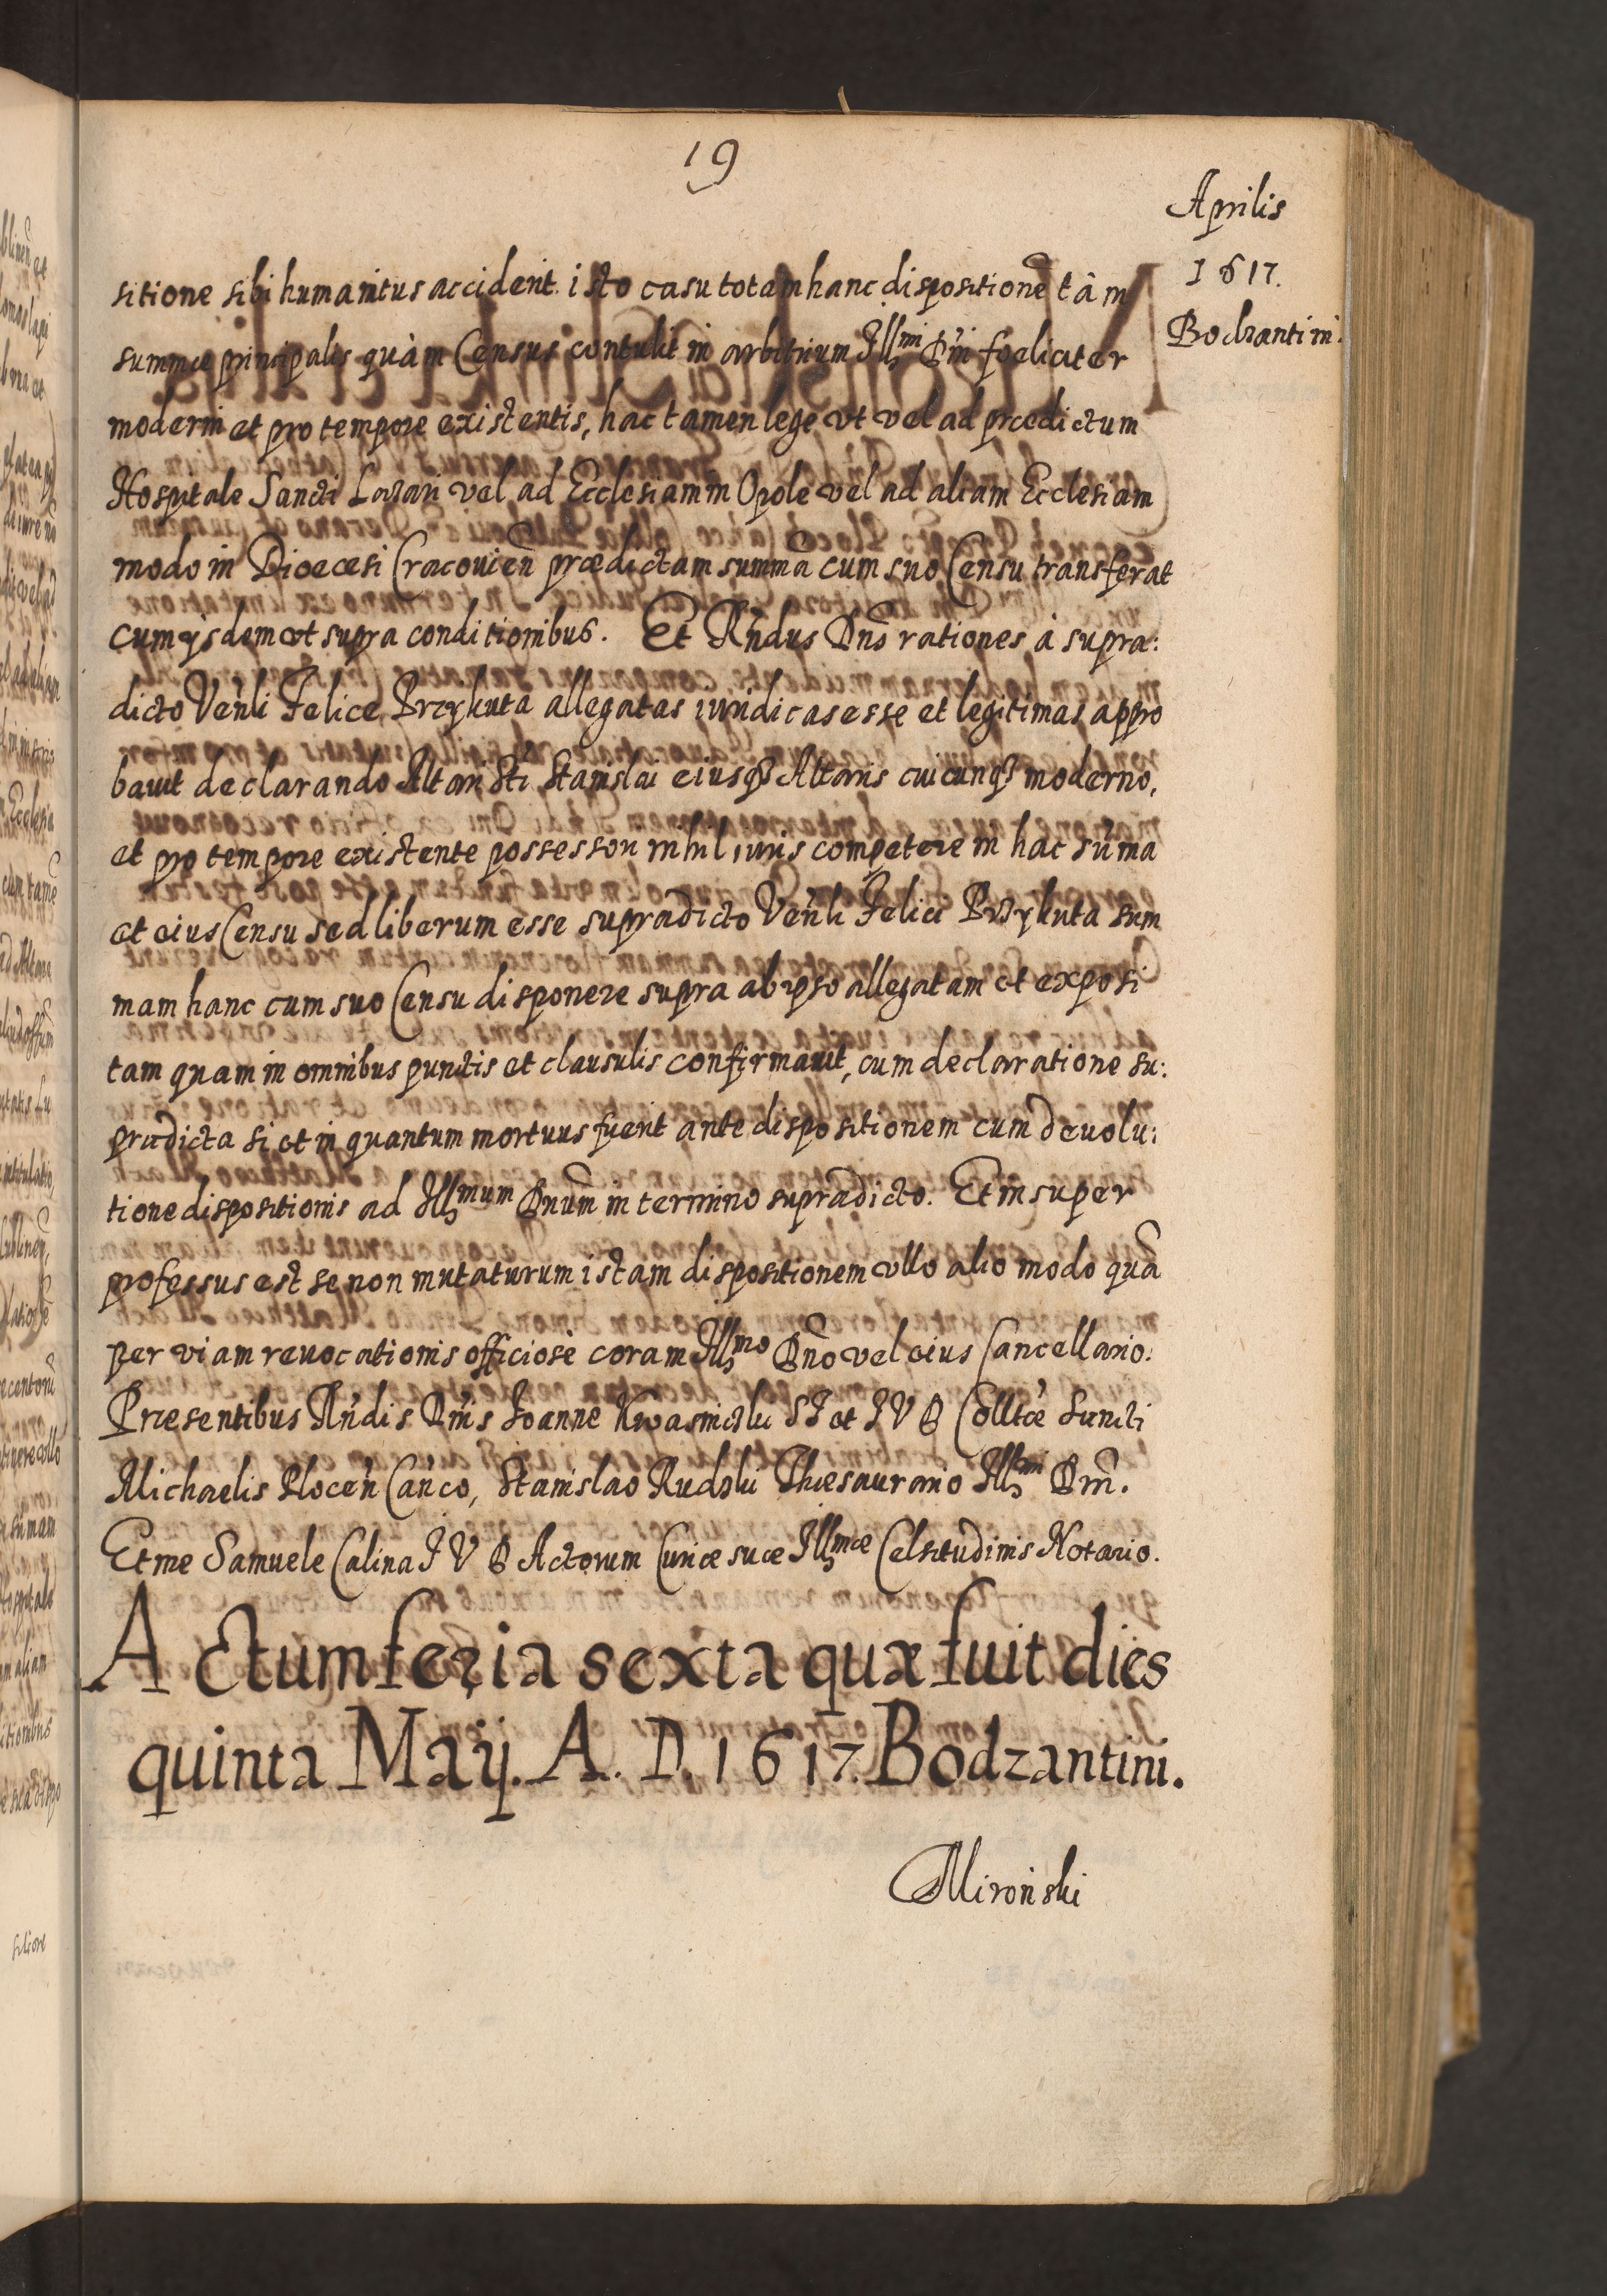 19
Aprilis
1617.
Bodzantini.
sitione sibi humanitus acciderit. isto casu totam hanc dispositionē tàm
summæ principalis quàm Census contulit in arbitrium Illmi Dni foeliciter
moderni et pro tempore existentis, hac tamen lege vt vel ad prædictum
Hospitale Sancti Lazari vel ad Ecclesiam in Opole vel ad aliam Ecclesiam
modo in Dioecesi Cracouien̄ prædictam summā cum suo Censu transferat
cum ijsdem vt supra conditionibus. Et Rn̄dus Dn̄s rationes à supra:
dicto Ven̄li Felice Przykuta allegatas iuridicas esse et legitimas appro
bauit declarando Altari Sti Stanislai eiusq3 Altaris cuicunq3 moderno,
et pro tempore existente possessori nihil iuris competere in hac sūma
et eius Censu sed liberum esse supradicto Ven̄li Felici Przykuta sum
mam hanc cum suo Censu disponere supra ab ipso allegatam et exposi
tam quam in omnibus punctis et clausulis confirmauit, cum declaratione su:
pradicta si et in quantum mortuus fuerit ante dispositionem cum deuolu:
tione dispositionis ad Illmum Dnūm in termino supradicto. Et insuper
professus est se non mutaturum istam dispositionem vllo alio modo quā
per viam reuocationis officiose coram Illmo Dn̄o vel eius Cancellario.
Præsentibus Rn̄dis Dn̄is Joanne Kwasnicki ST et I V D Colltæ Sancti
Michaelis Plocen̄ Can̄co, Stanislao Rudzki Thesaurario Illmi Dn̄i.
Et me Samuele Calina I V D Actorum Curiæ suæ Illmæ Celsitudinis Notario.
Actum feria sexta quæ fuit dies
quinta Maij. A. D. 1617. Bodzantini.
Miroński